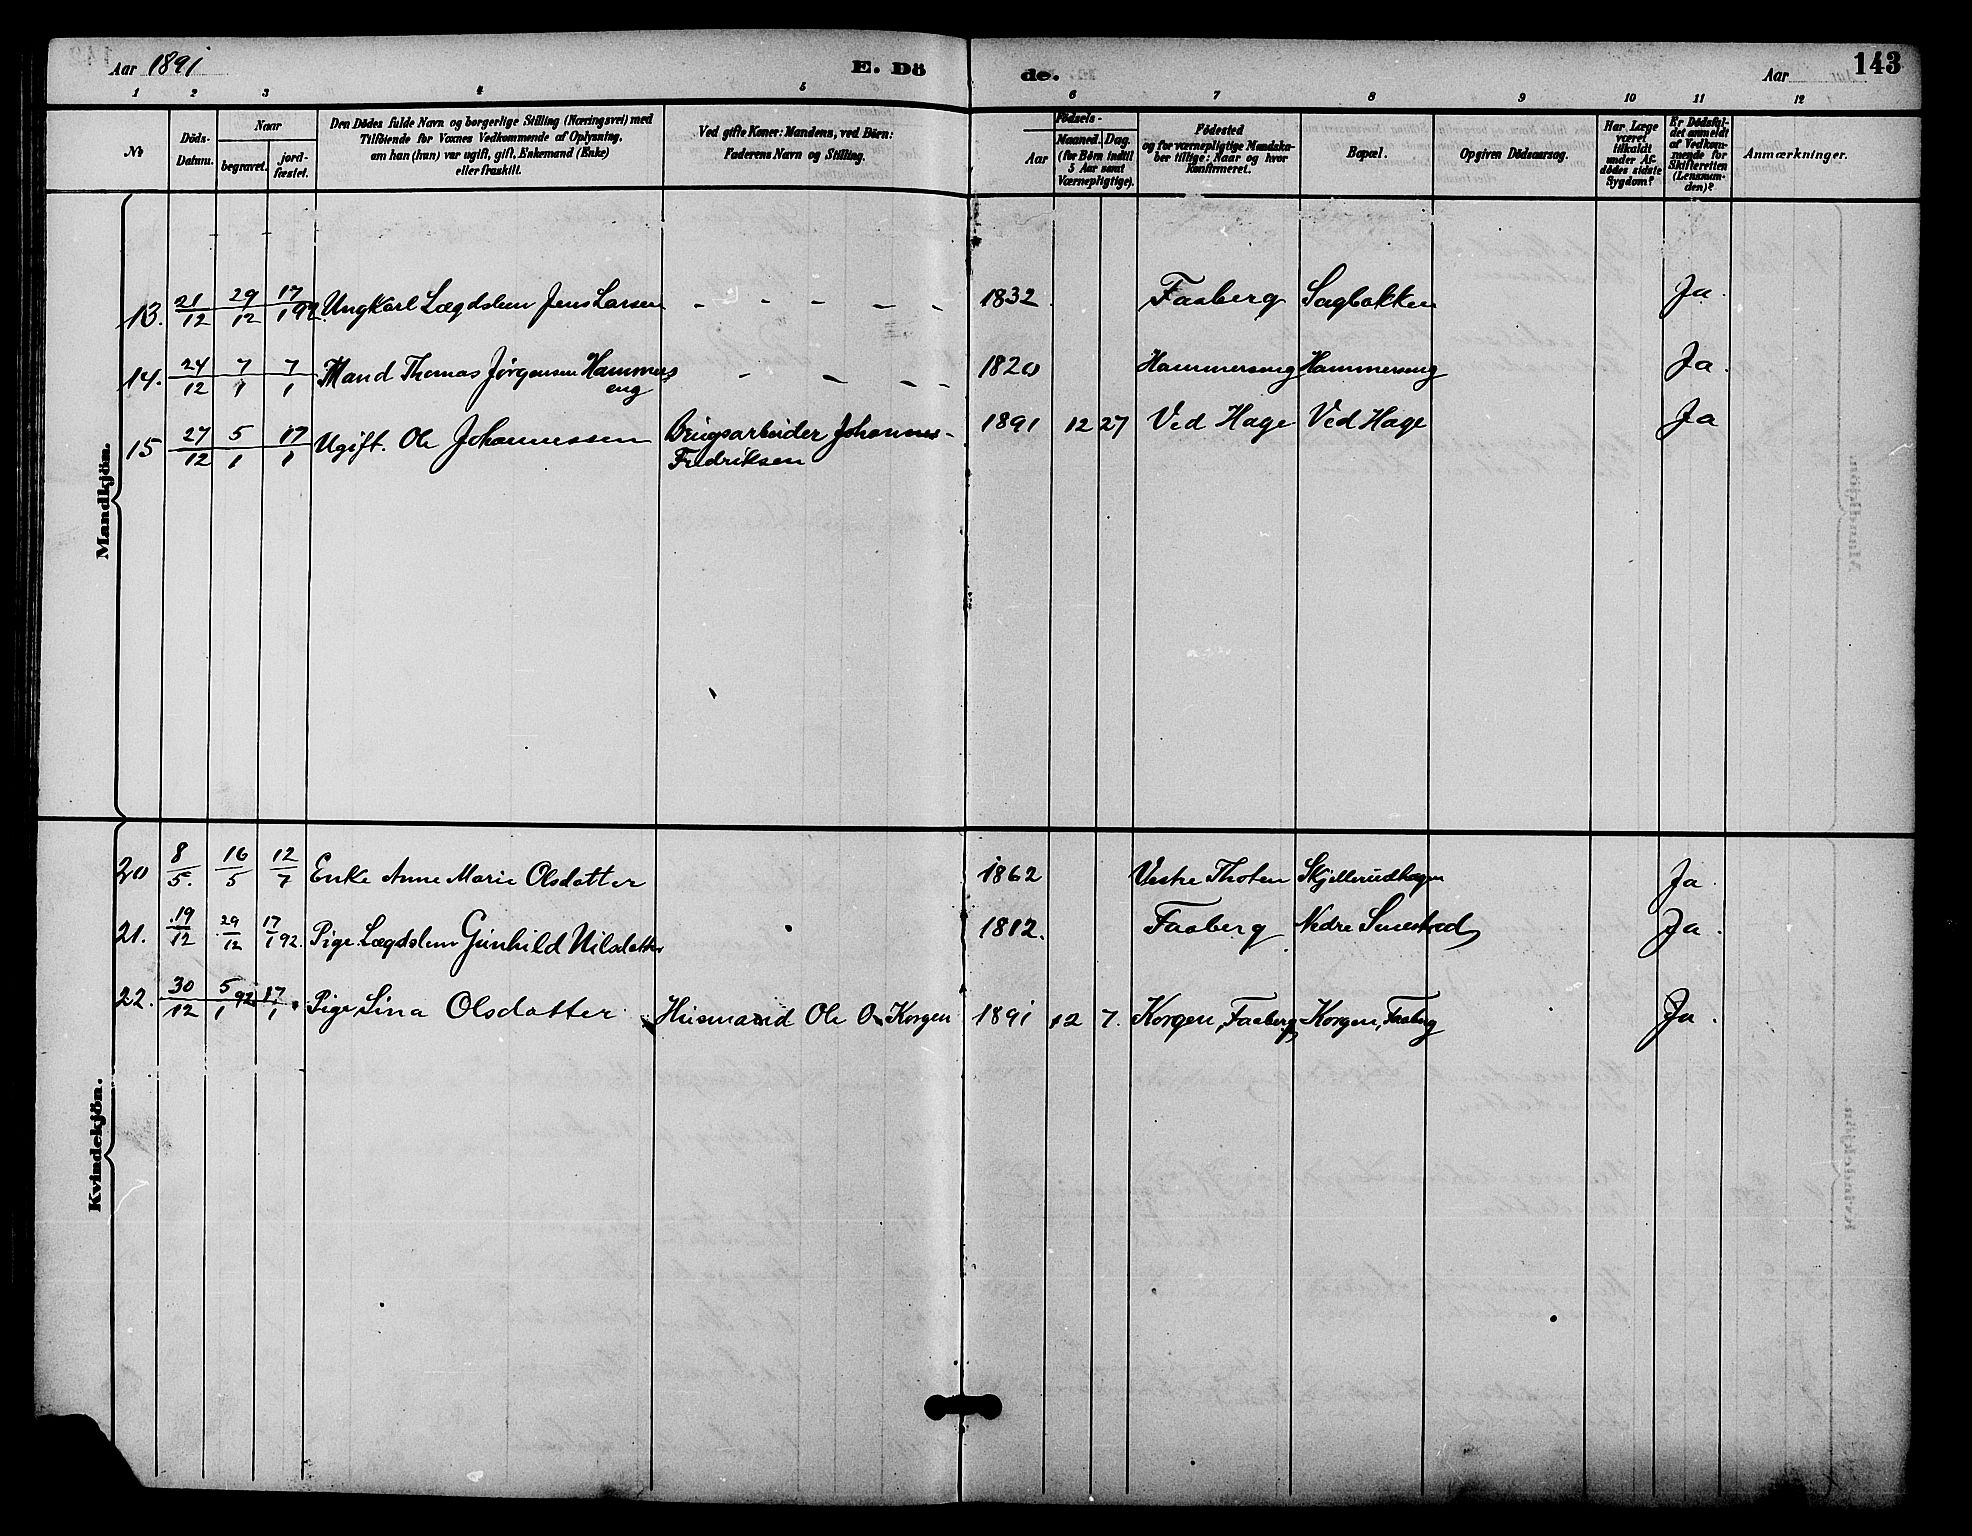 Aar 1891 E. Dö de. Aar 143
1 2 3 4 5 6 7 8 9 10 11 12
No
Döds-
Datum.
Naar
begravet.
jord-
fæstet.
Den Dödes fulde Navn og borgerlige Stilling (Næringsvei) med
Tilföiende for Voxnes Vedkommende af Oplysning,
om han (hun) var ugift, gift, Enkemand (Enke)
eller fraskilt.
Ved gifte Koner: Mandens, ved Börn:
Faderens Navn og Stilling.
Födsels-
Aar
Maaned. Dag.
(for Börn indtil
5 Aar samt
Værnepligtige).
Födested
og for værnepligtige Mandska-
ber tillige: Naar og hvor
konfirmeret.
Bopæl.
Opgiven Dödsaarsag.
Har Læge
været
tilkaldt
under Af-
dödes sidste
Sygdom?
Er Dödsfal-
det anmeldt
af Vedkom-
mende for
Skifteretten
(Lensman-
den)?
Anmærkninger.
Mandkjön.
13. 21/12 29/12 17/1 92. Ungkarl Lægdslem Jens Larsen - - - - - 1832 Faaberg Sagbakken Ja.
14. 24/12 7/1 7/1 Mand Thomas Jørgensen Hammers - - - - 1820 Hammerseng Hammerseng Ja.
eng
15 27/12 5/1 17/1 Ugift. Ole Johannessen Brugsarbeider Johannes- 1891 12 27 Ved Hage Ved Hage Ja
Fredriksen
Kvindekjön.
20 8/5. 16/5 12/7 Enke Anne Marie Olsdatter 1862 Vestre Thoten Skjellerudhagen Ja.
21. 19/12 29/12 17/1 92. Pige Lægdslem Gunhild Nilsdatter 1812. Faaberg Nedre Smestad Ja.
22. 30/12 5/1 92 17/1 Pige Lina Olsdatter Husmand Ole O. Korgen 1891 12 7. Korgen, Faaberg Korgen, Faaberg Ja.